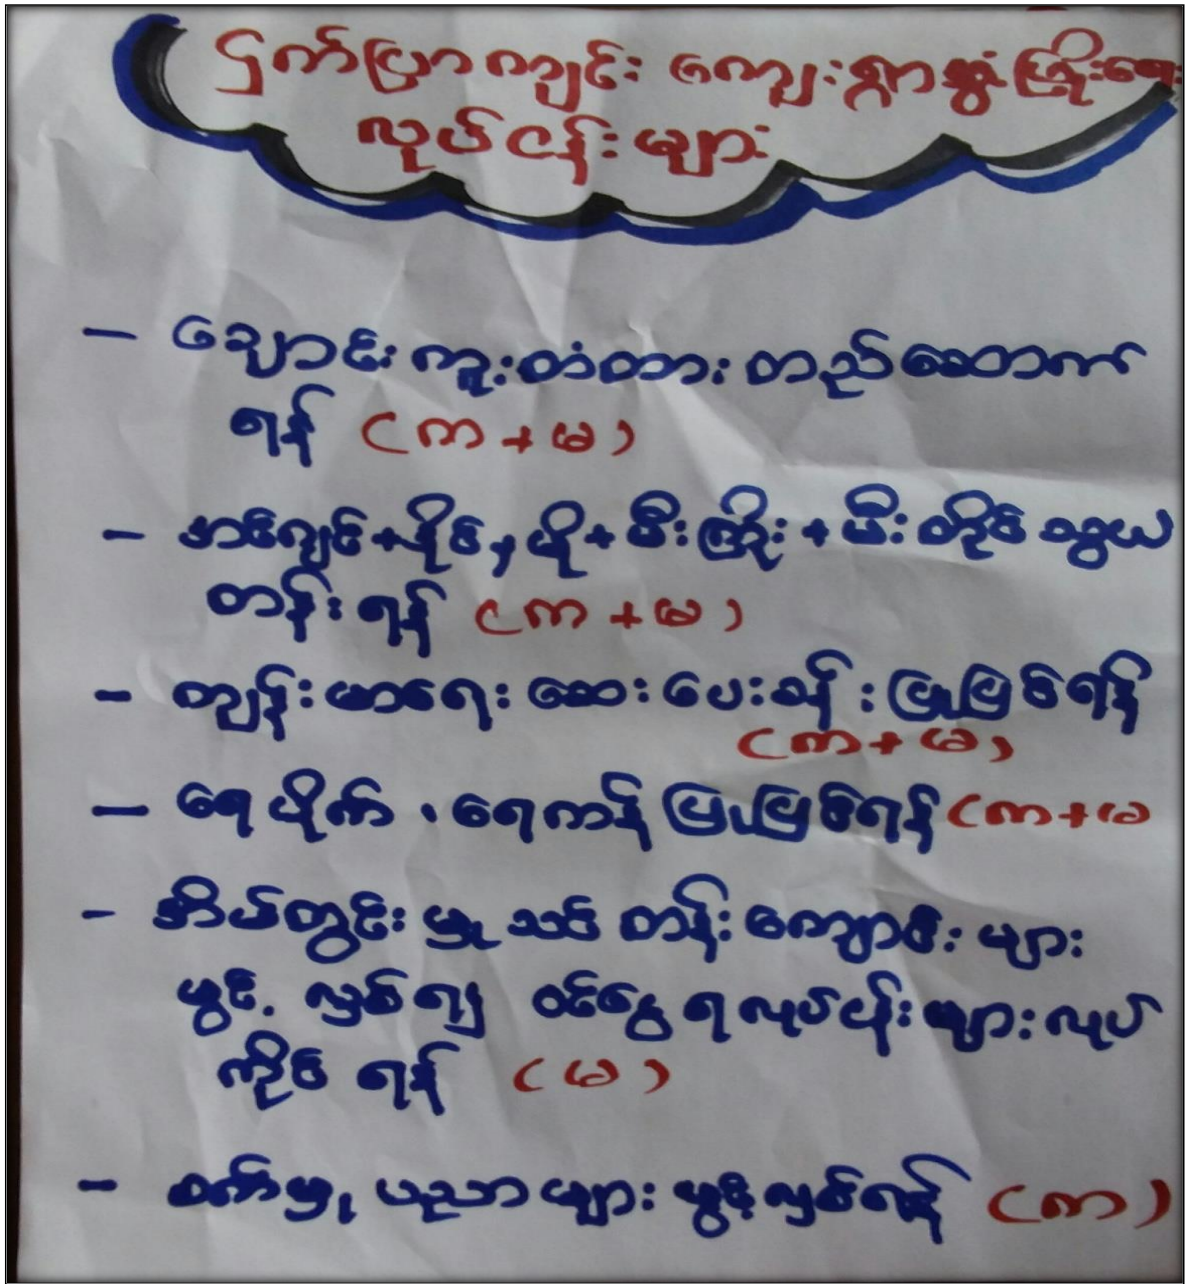 ငှက်ပြာကျင်း ကျေးရွာဖွံ့ဖြိုးရေး
လုပ်ငန်းများ
- ချောင်းကူးတံတား တည်ဆောက်
ရန် (က + မ)
- အင်ဂျင်+ဒိုင်, ပို+မီးကြိုး+မီးတိုင် သွယ်
တန်း ရန် (က + မ)
- ကျန်းမာရေး ဆေးပေးခန်း ပြုပြင်ရန်
(က + မ)
- ရေပိုက် ၊ ရေကန် ပြုပြင်ရန် (က + မ
- အိမ်တွင်းမှု သင်တန်းကျောင်း များ
ဖွင့် လှစ်၍ ဝင်ငွေရလုပ်ငန်းများ လုပ်
ကိုင် ရန် (မ)
- စက်မှု ပညာများ ဖွင့်လှစ်ရန် (က)